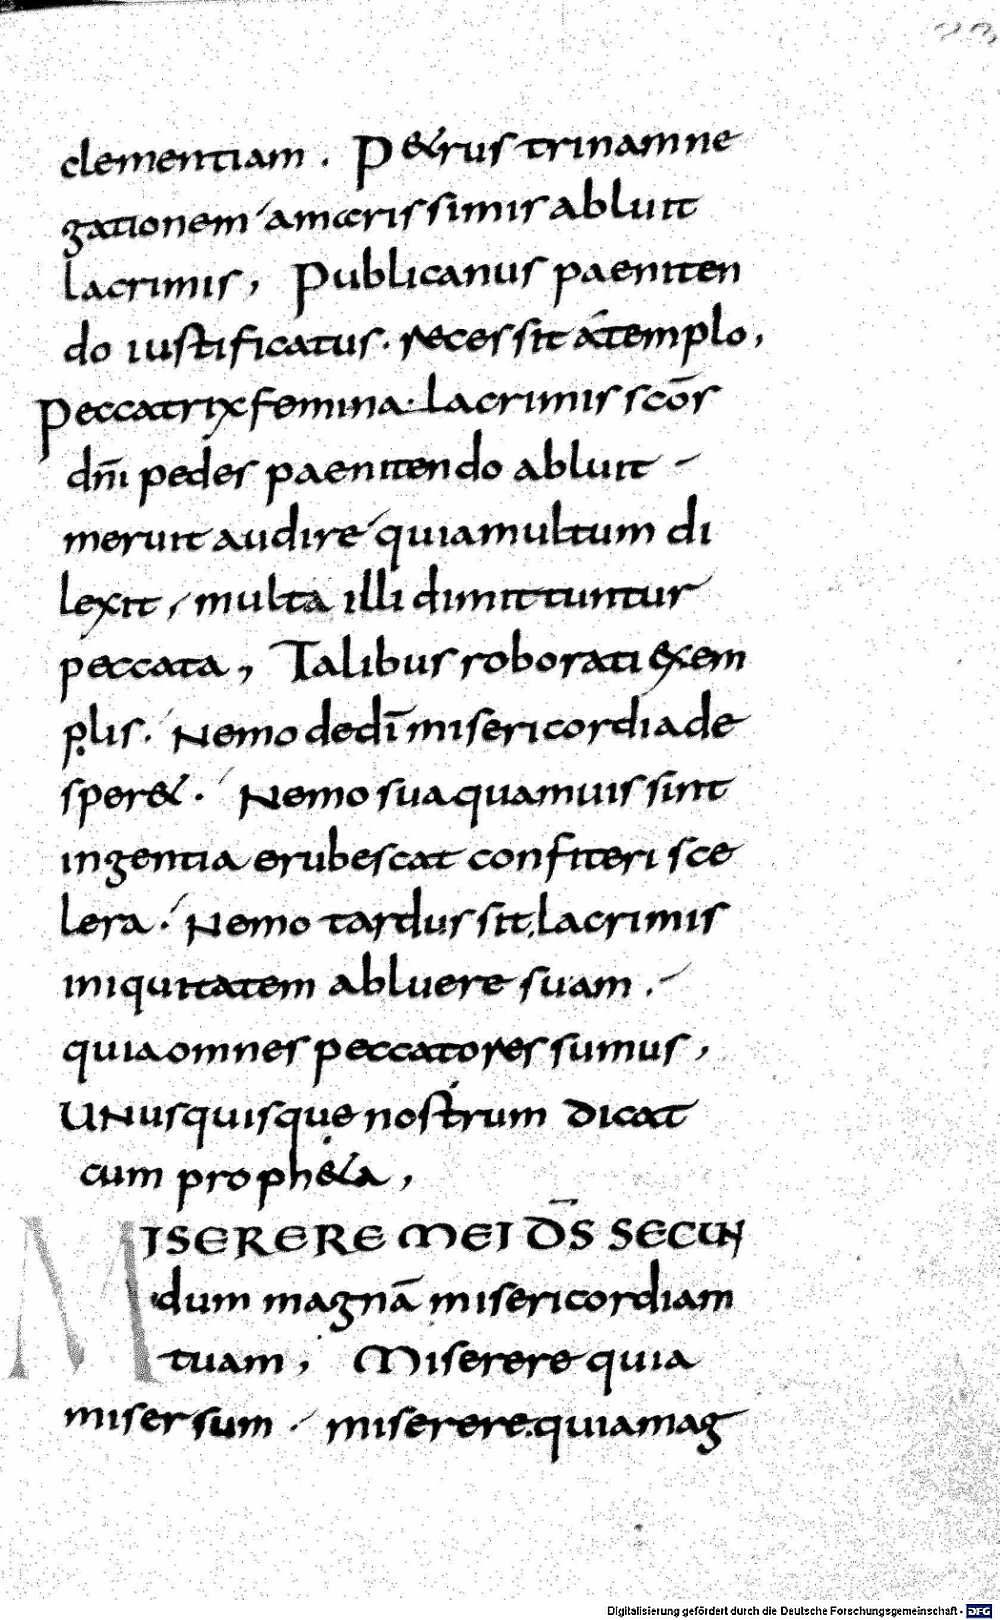 23
clementiam . Petrus trinam ne
gationem amarissimis abluit
lacrimis , Publicanus paeniten
do iustificatus . recessit a templo ,
Peccatrix femina . lacrimis scōs
dn̄i pedes paenitendo abluit
meruit audire quia multum di
lexit , multa illi dimittuntur
peccata , Talibus roborati exem
plis . Nemo de dī misericordia de
speret . Nemo sua quamuis sint
ingentia erubescat confiteri sce
lera . Nemo tardus sit , lacrimis
iniquitatem abluere suam .
quia omnes peccatores sumus ,
UNusquisque nostrum dicat
cum propheta ,
MISERERE MEI D̄S SECUN
dum magnā misericordiam
tuam , Miserere quia
miser sum . miserere . quia mag
Digitalisierung gefördert durch die Deutsche Forschungsgemeinschaft - DFG